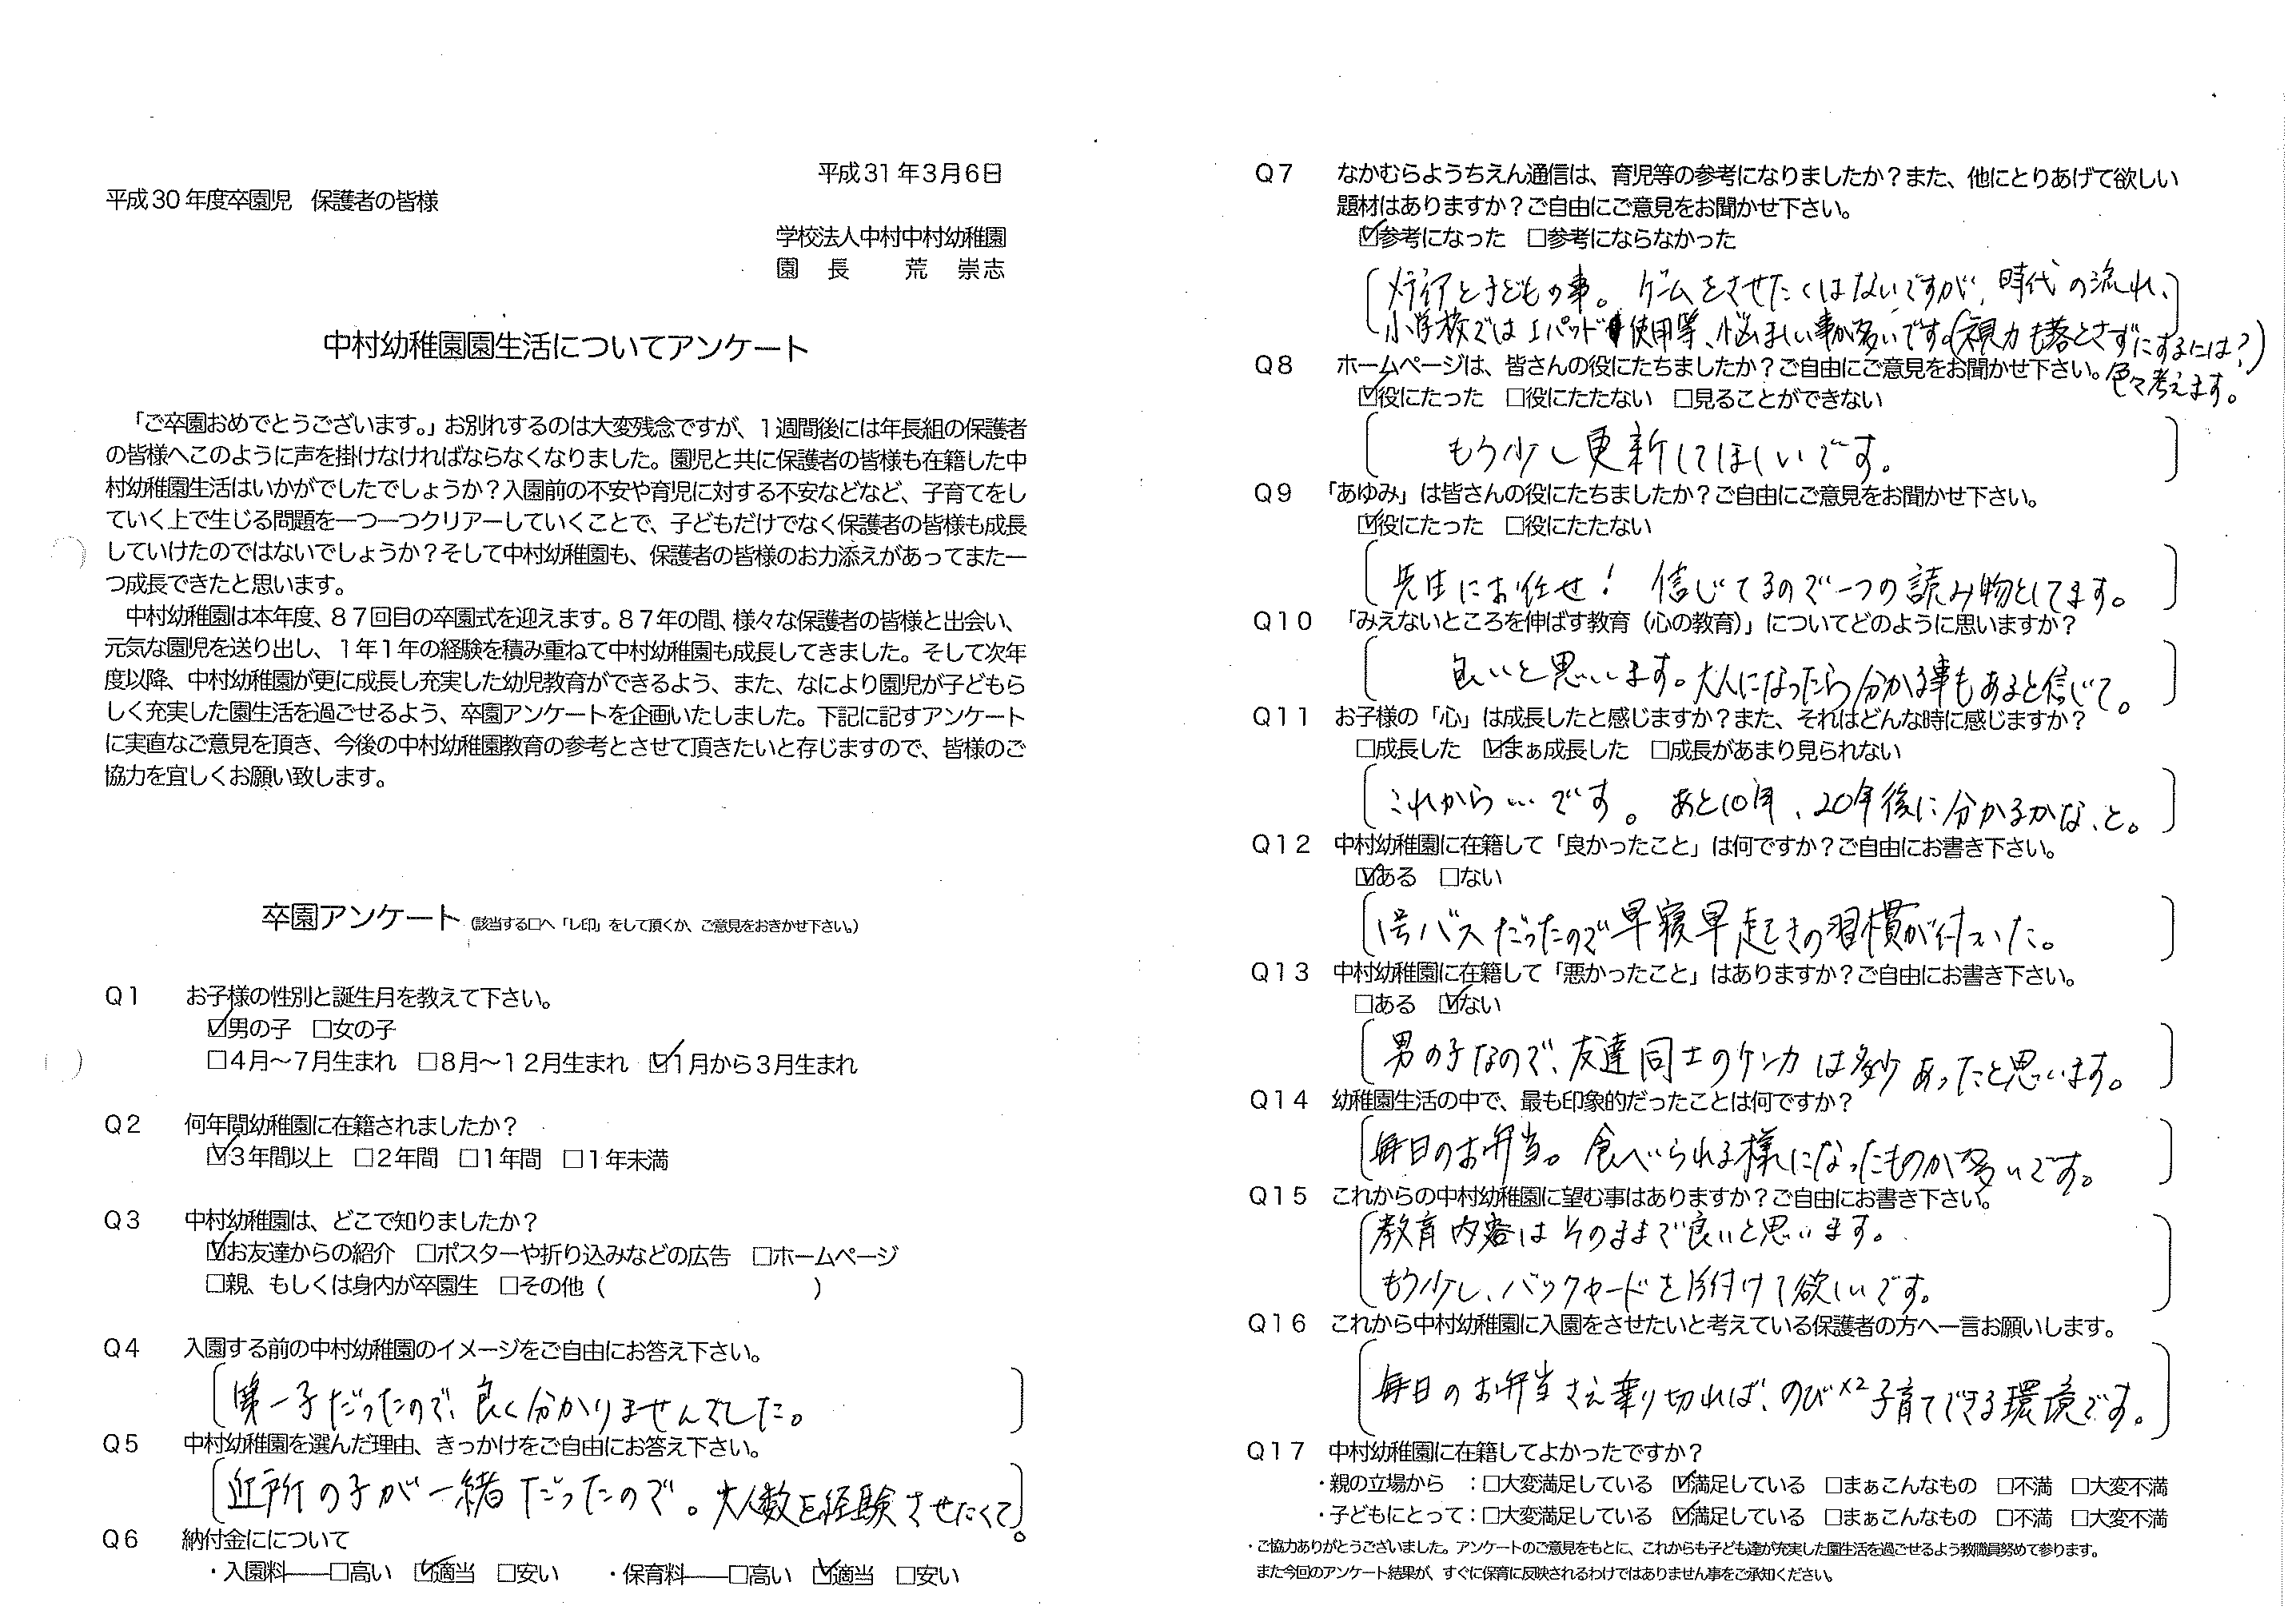 平成31年3月6日
平成30年度卒園児　保護者の皆様
学校法人中村中村幼稚園
園　長　　荒　崇志
中村幼稚園園生活についてアンケート
「ご卒園おめでとうございます。」お別れするのは大変残念ですが、1週間後には年長組の保護者
の皆様へこのように声を掛けなければならなくなりました。園児と共に保護者の皆様も在籍した中
村幼稚園生活はいかがでしたでしょうか？入園前の不安や育児に対する不安などなど、子育てをし
ていく上で生じる問題を一つ一つクリアーしていくことで、子どもだけでなく保護者の皆様も成長
していけたのではないでしょうか？そして中村幼稚園も、保護者の皆様のお力添えがあってまた一
つ成長できたと思います。
中村幼稚園は本年度、87回目の卒園式を迎えます。87年の間、様々な保護者の皆様と出会い、
元気な園児を送り出し、1年1年の経験を積み重ねて中村幼稚園も成長してきました。そして次年
度以降、中村幼稚園が更に成長し充実した幼児教育ができるよう、また、なにより園児が子どもら
しく充実した園生活を過ごせるよう、卒園アンケートを企画いたしました。下記に記すアンケート
に実直なご意見を頂き、今後の中村幼稚園教育の参考とさせて頂きたいと存じますので、皆様のご
協力を宜しくお願い致します。
卒園アンケート（該当する□へ「レ印」をして頂くか、ご意見をおきかせ下さい。）
Q1　お子様の性別と誕生月を教えて下さい。
☑男の子　□女の子
□4月～7月生まれ　□8月～12月生まれ　☑1月から3月生まれ
Q2　何年間幼稚園に在籍されましたか？
☑3年間以上　□2年間　□1年間　□1年未満
Q3　中村幼稚園は、どこで知りましたか？
☑お友達からの紹介　□ポスターや折り込みなどの広告　□ホームページ
□親、もしくは身内が卒園生　□その他（　　　　　　　　　　）
Q4　入園する前の中村幼稚園のイメージをご自由にお答え下さい。
第一子だったので、良く分かりませんでした。
Q5　中村幼稚園を選んだ理由、きっかけをご自由にお答え下さい。
近所の子が一緒だったので。大人数を経験させたくて。
Q6　納付金にについて
・入園料――□高い　☑適当　□安い　　・保育料――□高い　☑適当　□安い
Q7　なかむらようちえん通信は、育児等の参考になりましたか？また、他にとりあげて欲しい
題材はありますか？ご自由にご意見をお聞かせ下さい。
☑参考になった　□参考にならなかった
メディアと子どもの事。ゲームをさせたくはないですが、時代の流れ、
小学校ではiパッド使用等、悩ましい事が多いです。(視力も落とさずにするには？)
色々考えます。
Q8　ホームページは、皆さんの役にたちましたか？ご自由にご意見をお聞かせ下さい。
☑役にたった　□役にたたない　□見ることができない
もう少し更新してほしいです。
Q9　「あゆみ」は皆さんの役にたちましたか？ご自由にご意見をお聞かせ下さい。
☑役にたった　□役にたたない
先生にお任せ！信じてるので一つの読み物としてます。
Q10　「みえないところを伸ばす教育（心の教育）」についてどのように思いますか？
良いと思います。大人になったら分かる事もあると信じて。
Q11　お子様の「心」は成長したと感じますか？また、それはどんな時に感じますか？
□成長した　☑まぁ成長した　□成長があまり見られない
これから…です。あと10年、20年後に分かるかな、と。
Q12　中村幼稚園に在籍して「良かったこと」は何ですか？ご自由にお書き下さい。
☑ある　□ない
1号バスだったので早寝早起きの習慣が付いた。
Q13　中村幼稚園に在籍して「悪かったこと」はありますか？ご自由にお書き下さい。
□ある　☑ない
男の子なので、友達同士のケンカは多少あったと思います。
Q14　幼稚園生活の中で、最も印象的だったことは何ですか？
毎日のお弁当。食べられる様になったものが多いです。
Q15　これからの中村幼稚園に望む事はありますか？ご自由にお書き下さい。
教育内容はそのままで良いと思います。
もう少し、バックヤードを片付けて欲しいです。
Q16　これから中村幼稚園に入園をさせたいと考えている保護者の方へ一言お願いします。
毎日のお弁当さえ乗り切れば、のび×2子育てできる環境です。
Q17　中村幼稚園に在籍してよかったですか？
・親の立場から　：□大変満足している　☑満足している　□まぁこんなもの　□不満　□大変不満
・子どもにとって：□大変満足している　☑満足している　□まぁこんなもの　□不満　□大変不満
・ご協力ありがとうございました。アンケートのご意見をもとに、これからも子ども達が充実した園生活を過ごせるよう教職員努めて参ります。
また今回のアンケート結果が、すぐに保育に反映されるわけではありません事をご承知ください。